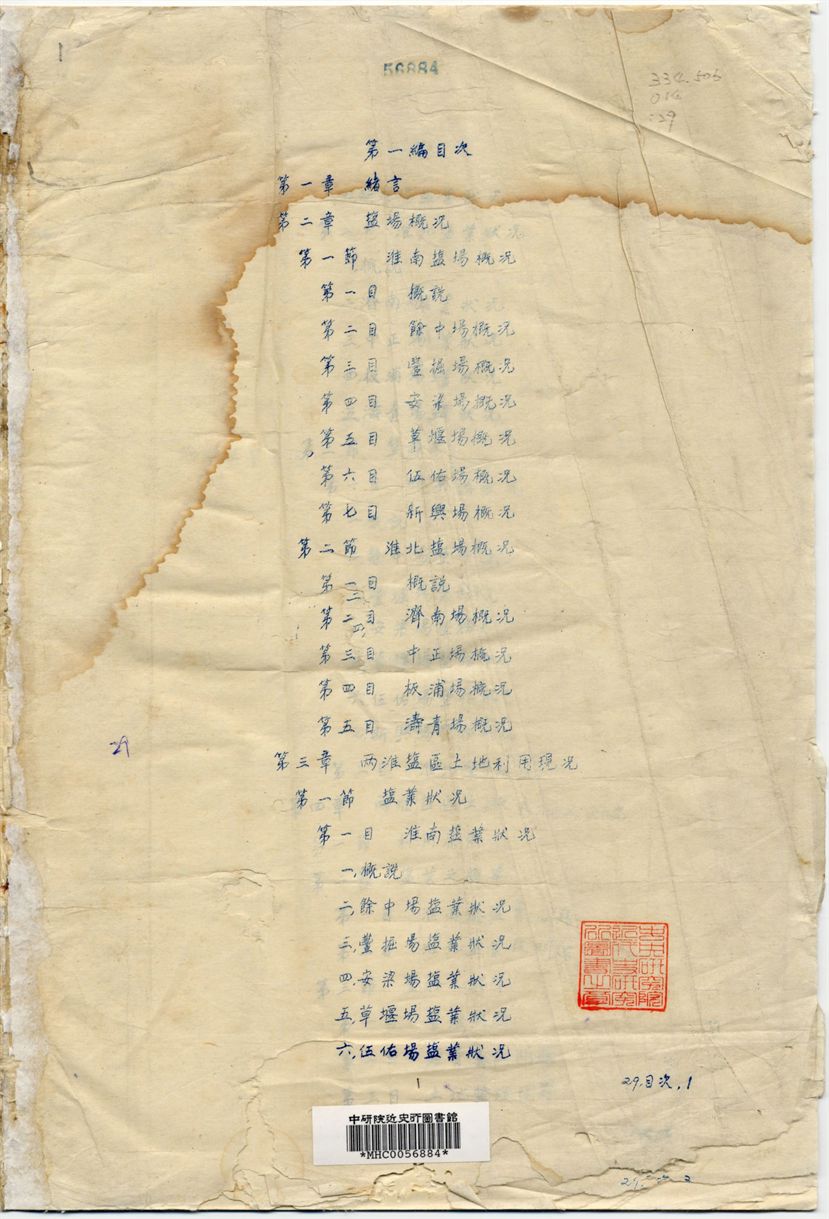 56884
334.505
014
:29
第一編目次
第一章　緒言
第二章　塩場概况
第一節　淮南塩場概况
第一目　概說
第二目　餘中場概况
第三目　豐掘場概况
第四目　安梁場概况
第五目　草堰場概况
第六目　伍佑場概况
第七目　新興場概况
第二節　淮北塩場概况
第一目　概說
第二目　濟南場概况
第三目　中正場概况
第四目　板浦場概况
第五目　濤青場概况
29
第三章　两淮塩區土地利用現况
第一節　塩業狀况
第一目　淮南塩業狀况
一,概說
二,餘中場塩業狀况
三,豐掘場塩業狀况
四,安梁場塩業狀况
五,草堰場塩業狀况
六,伍佑場塩業狀况
中央研究院
近代史研究
所圖書之章
29,目次,1
中研院近史所圖書館
*MHC0056884*